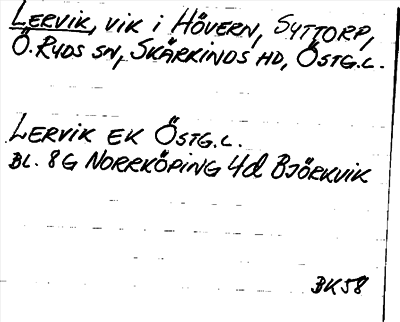 LERVIK, VIK I HÖVERN, SYTTORP,
Ö. RYDS SN, SKÄRKINDS HD, ÖSTG.L.
LERVIK EK ÖSTG.L.
BL. 8G NORRKÖPING 4d BJÖRKVIK
BK58